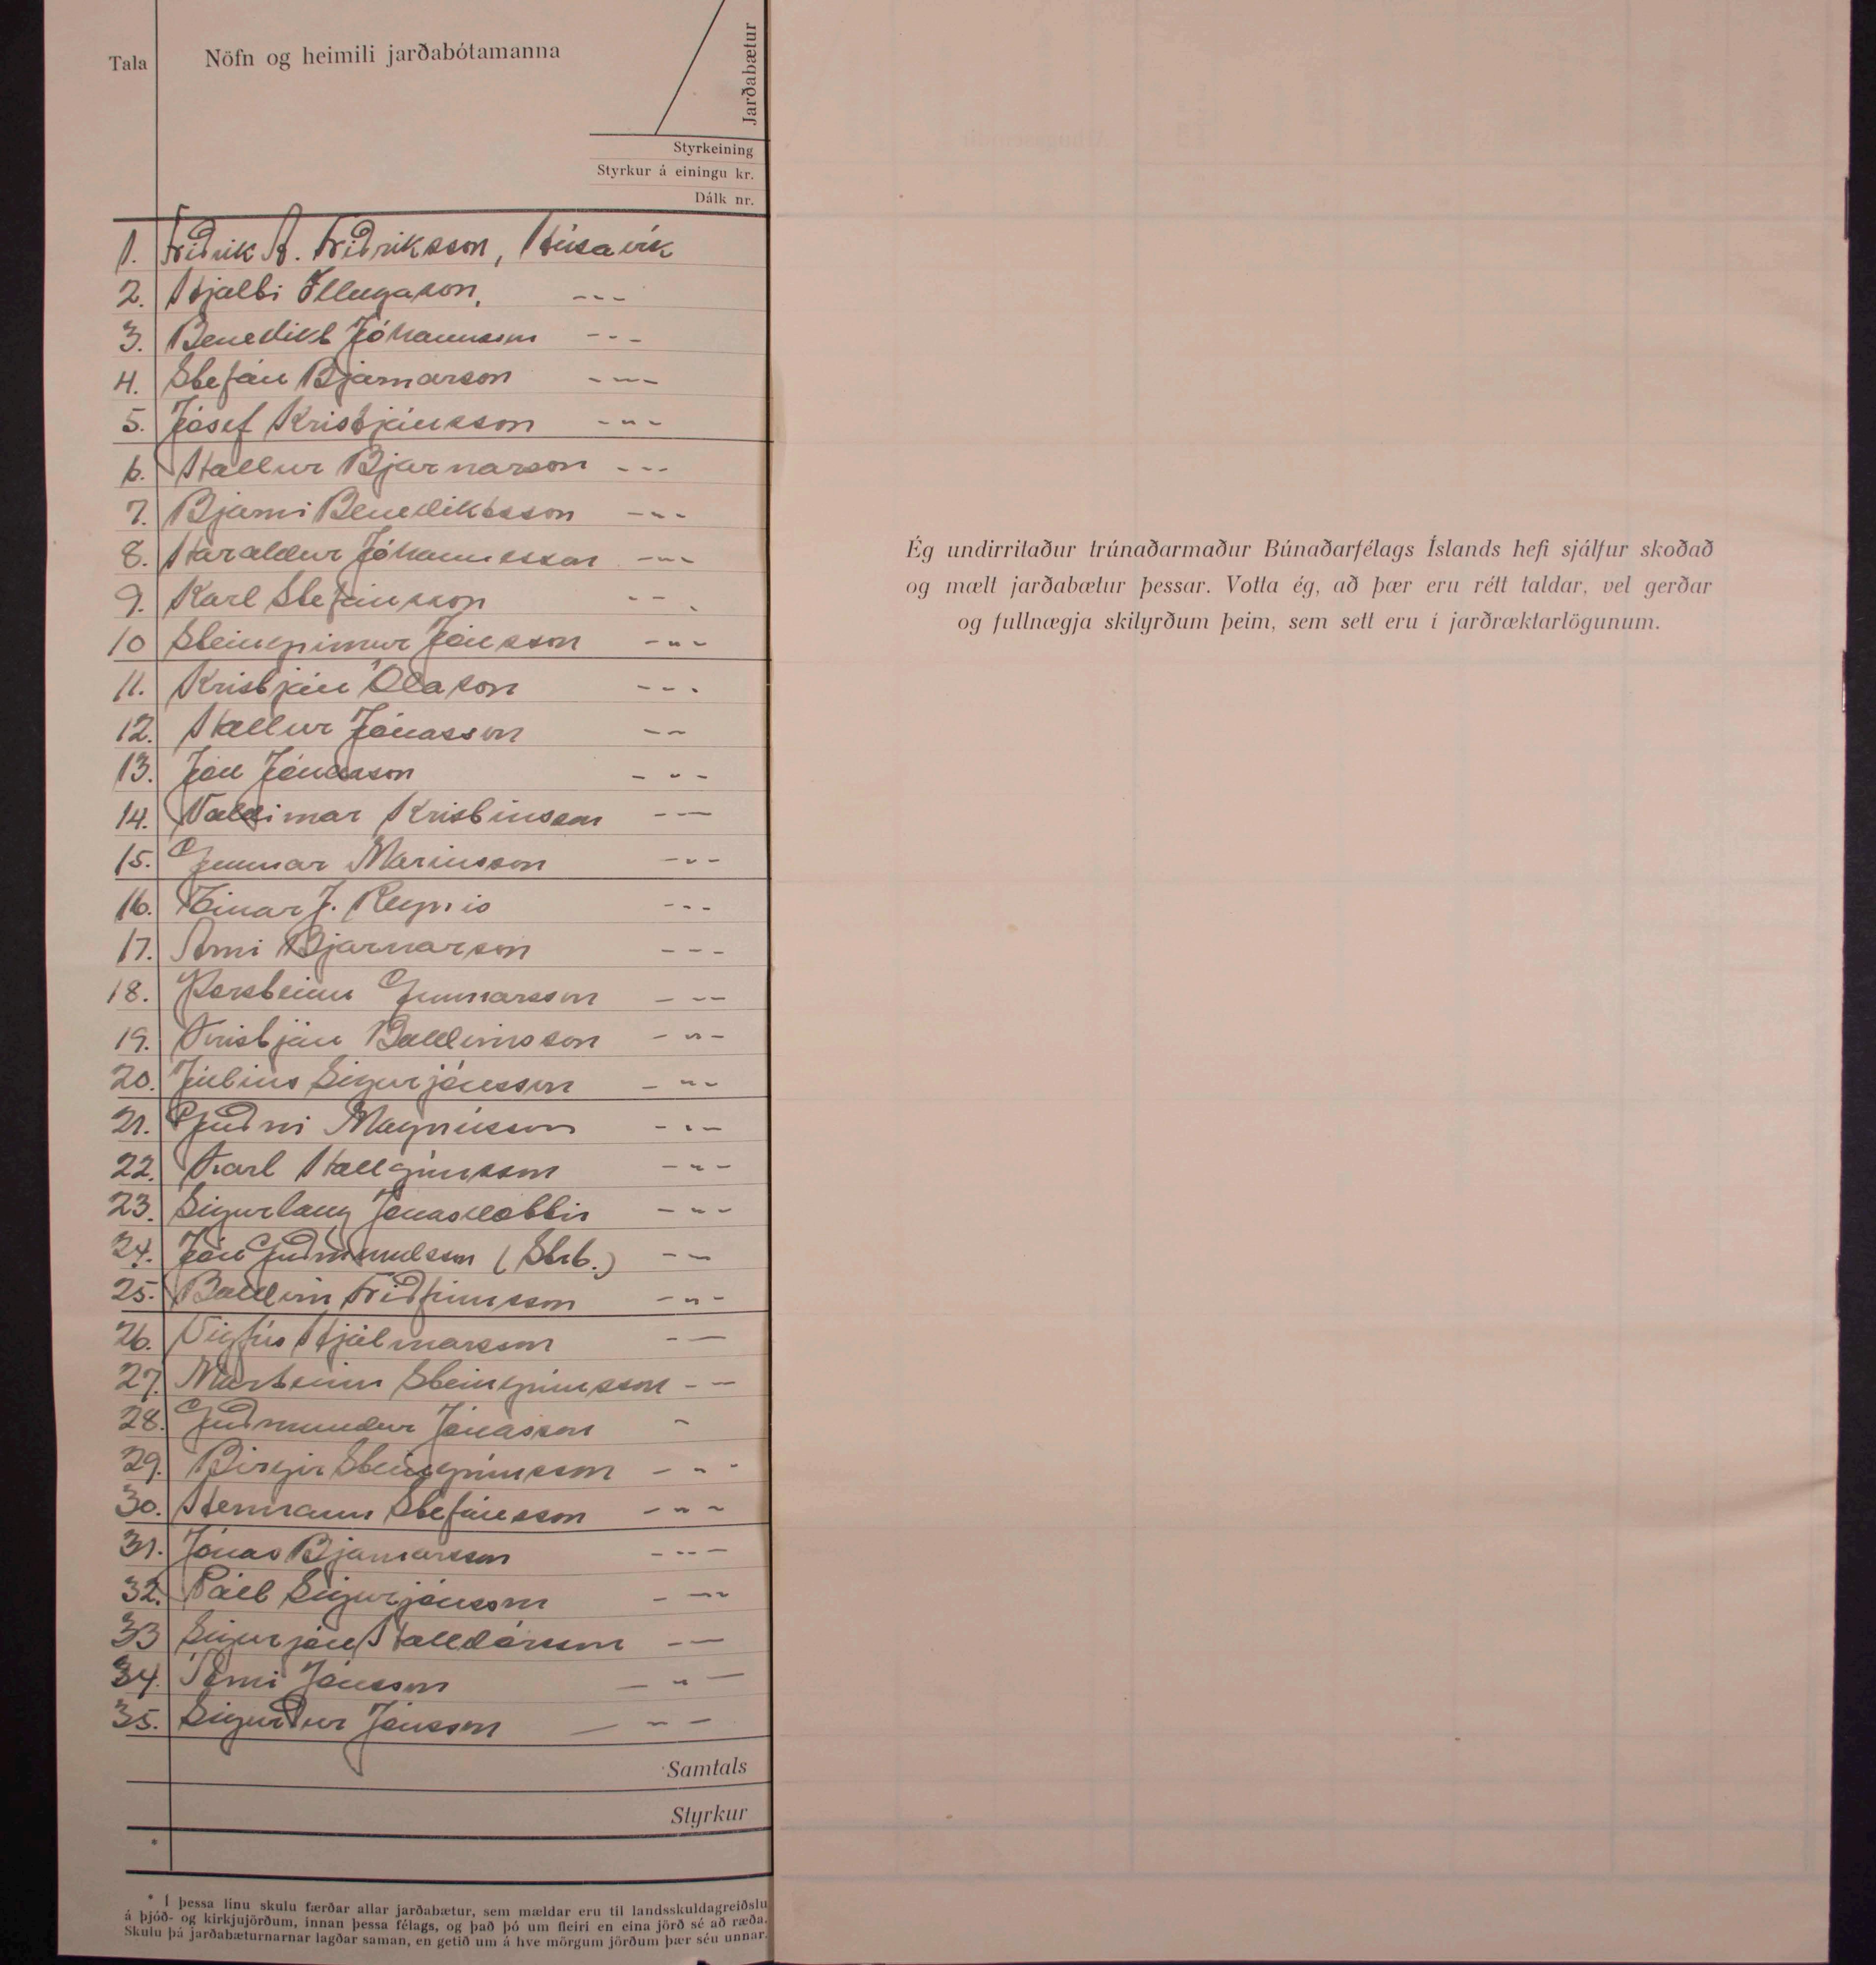 Tala
Nöfn og heimili jarðabótamanna
Jarðabætur
Styrkeining
Styrkur á einingu kr.
Dálk nr.
1. Friðrik A. Friðriksson, Húsavík
2. Hjalti Illugason, ---
3. Benedikt Jóhannsson ---
4. Stefán Bjarnarson ---
5. Jósef Kristjánsson ---
6. Hallur Bjarnarson ---
7. Bjarni Benediktsson ---
8. Haraldur Jóhannesson ---
9. Karl Stefánsson ---
10 Steingrímur Jónsson ---
11. Kristján Ólason ---
12. Hallur Jónasson --
13. Jón Jónasson ---
14. Valdimar Kristinsson --
15. Gunnar Maríusson ---
16. Einar J. Reynis ---
17. Árni Bjarnarson ---
18. Þorsteinn Gunnarsson ---
19. Kristján Baldvinsson ---
20. Júlíus Sigurjónsson ---
21. Guðni Magnússon ---
22. Karl Hallgrímsson ---
23. Sigurlaug Jónasdóttir ---
24. Jón Guðmundsson (Strb.) --
25. Baldvin Friðfinnsson ---
26. Vigfús Hjálmarsson --
27. Marteinn Steingrímsson ---
28. Guðmundur Jónasson -
29. Birgir Steingrímsson ---
30. Hermann Stefánsson ---
31. Jónas Bjarnarson ---
32. Páll Sigurjónsson ---
33 Sigurjón Halldórsson --
34. Árni Jónsson ---
35. Sigurður Jónsson ---
Samtals
Styrkur
*
* Í þessa línu skulu færðar allar jarðabætur, sem mældar eru til landsskuldagreiðslu
á þjóð- og kirkjujörðum, innan þessa félags, og það þó um fleiri en eina jörð sé að ræða.
Skulu þá jarðabæturnarnar lagðar saman, en getið um á hve mörgum jörðum þær séu unnar.
Ég undirritaður trúnaðarmaður Búnaðarfélags Íslands hefi sjálfur skoðað
og mælt jarðabætur þessar. Votta ég, að þær eru rétt taldar, vel gerðar
og fullnægja skilyrðum þeim, sem sett eru í jarðræktarlögunum.